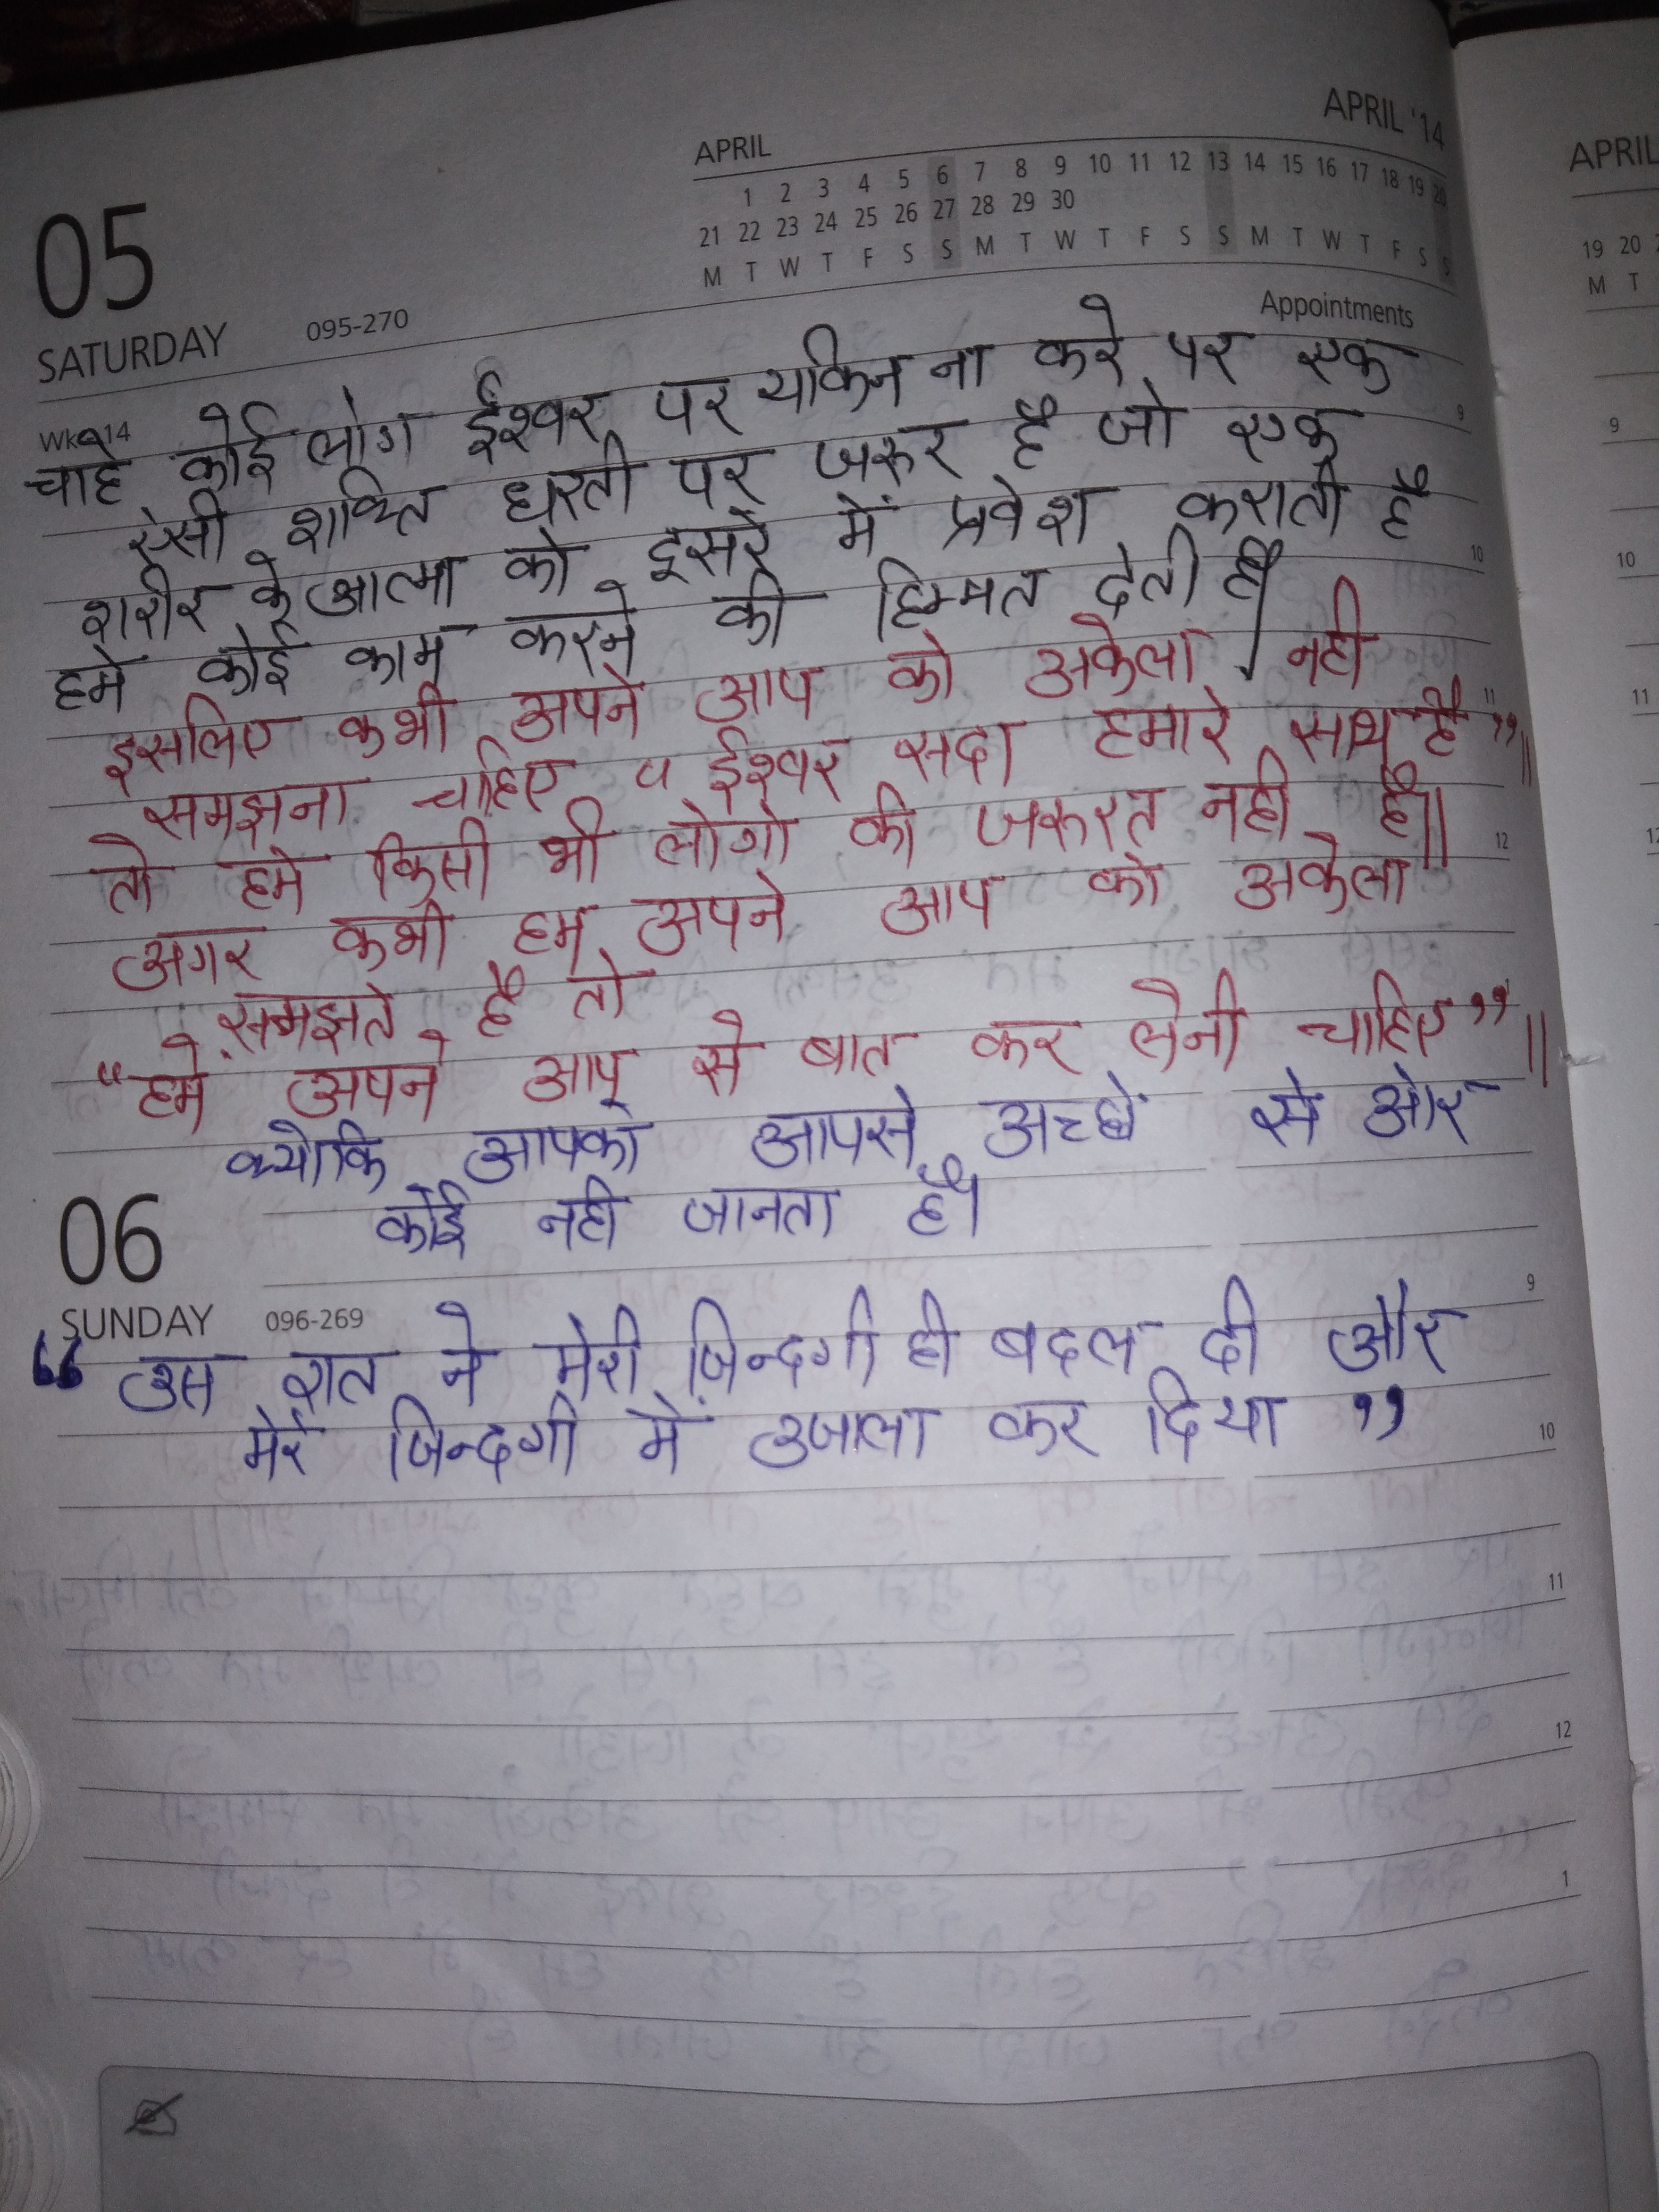 APRIL '14
APRIL
1 2 3 4 5 6 7 8 9 10 11 12 13 14 15 16 17 18 19 20
21 22 23 24 25 26 27 28 29 30
M T W T F S S M T W T F S S M T W T F S S
05
SATURDAY 095-270
Appointments
Wk 14
चाहे कोई लोग ईश्वर पर यकिन ना करे पर एक
ऐसी शक्ति धरती पर जरूर है जो एक
शरीर के आत्मा को दुसरे में प्रवेश कराती है
हमे कोई काम करने की हिम्मत देती है।
इसलिए कभी अपने आप को अकेला नही
समझना चाहिए ईश्वर सदा हमारे साथ है "॥
तो हमे किसी भी लोगो की जरूरत नही है॥
अगर कभी हम अपने आप को अकेला
समझते है तो
"हमे अपने आप से बात कर लेनी चाहिए"॥
क्योकि आपको आपसे अच्छे से ओर
कोई नही जानता है।
06
SUNDAY 096-269
" उस रात ने मेरी जिन्दगी ही बदल दी और
मेरे जिन्दगी में उजाला कर दिया "
9
10
11
12
9
10
11
12
1
APRIL
19 20
M T
9
10
11
12